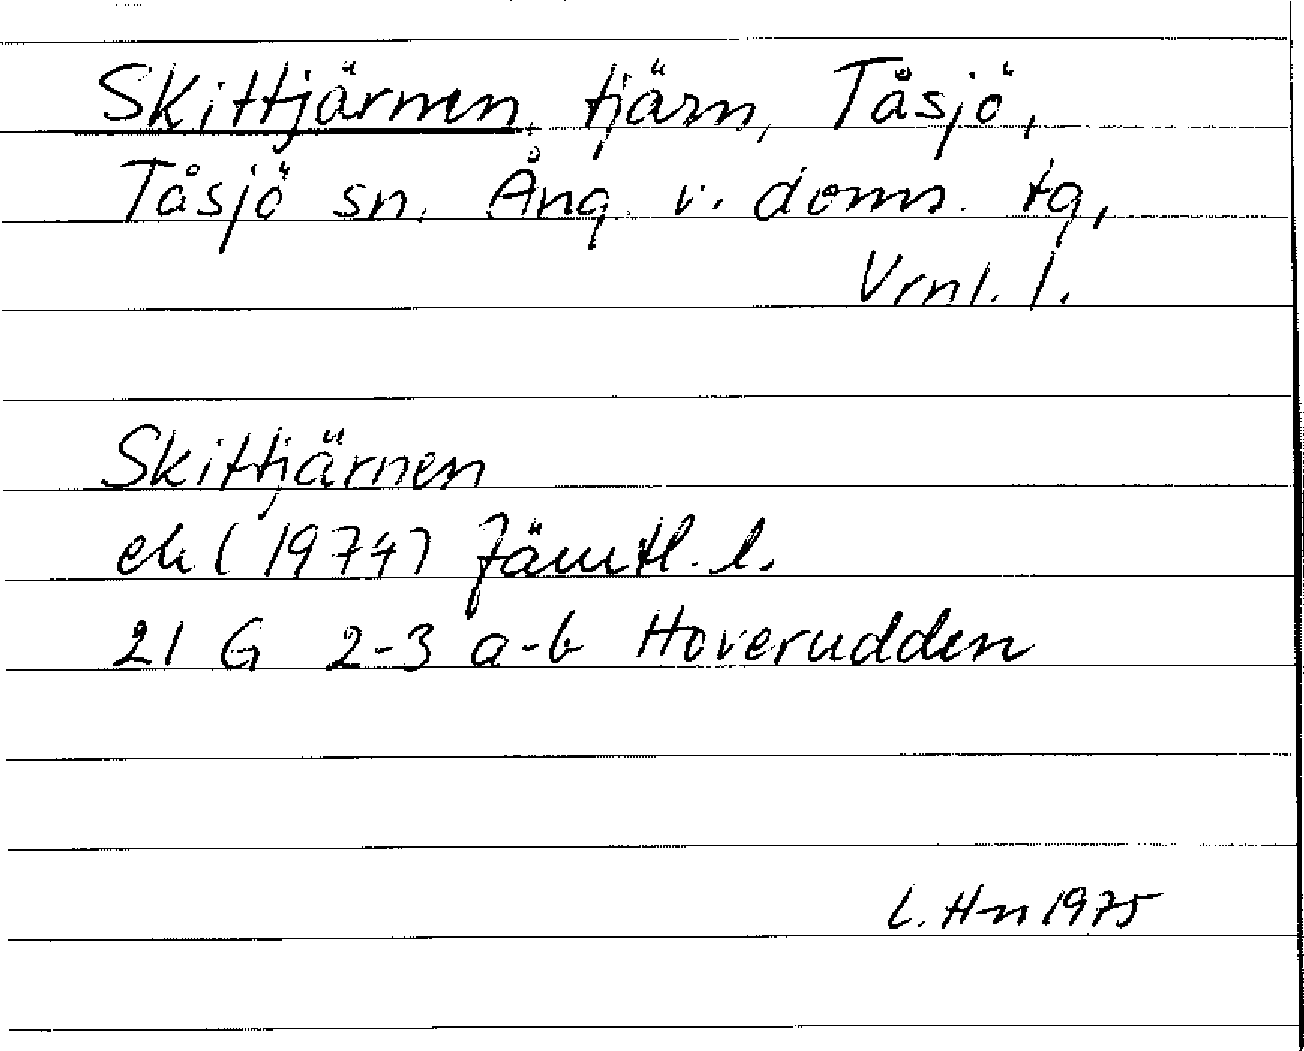 Skittjärnen, tjärn, Tåsjö,
Tåsjö sn. Ång. v. doms. tg,
Vrnl. l.
Skittjärnen
ek (1974) Jämtl. l.
21 G 2-3 a-b Hoverudden
L. Hn 1975